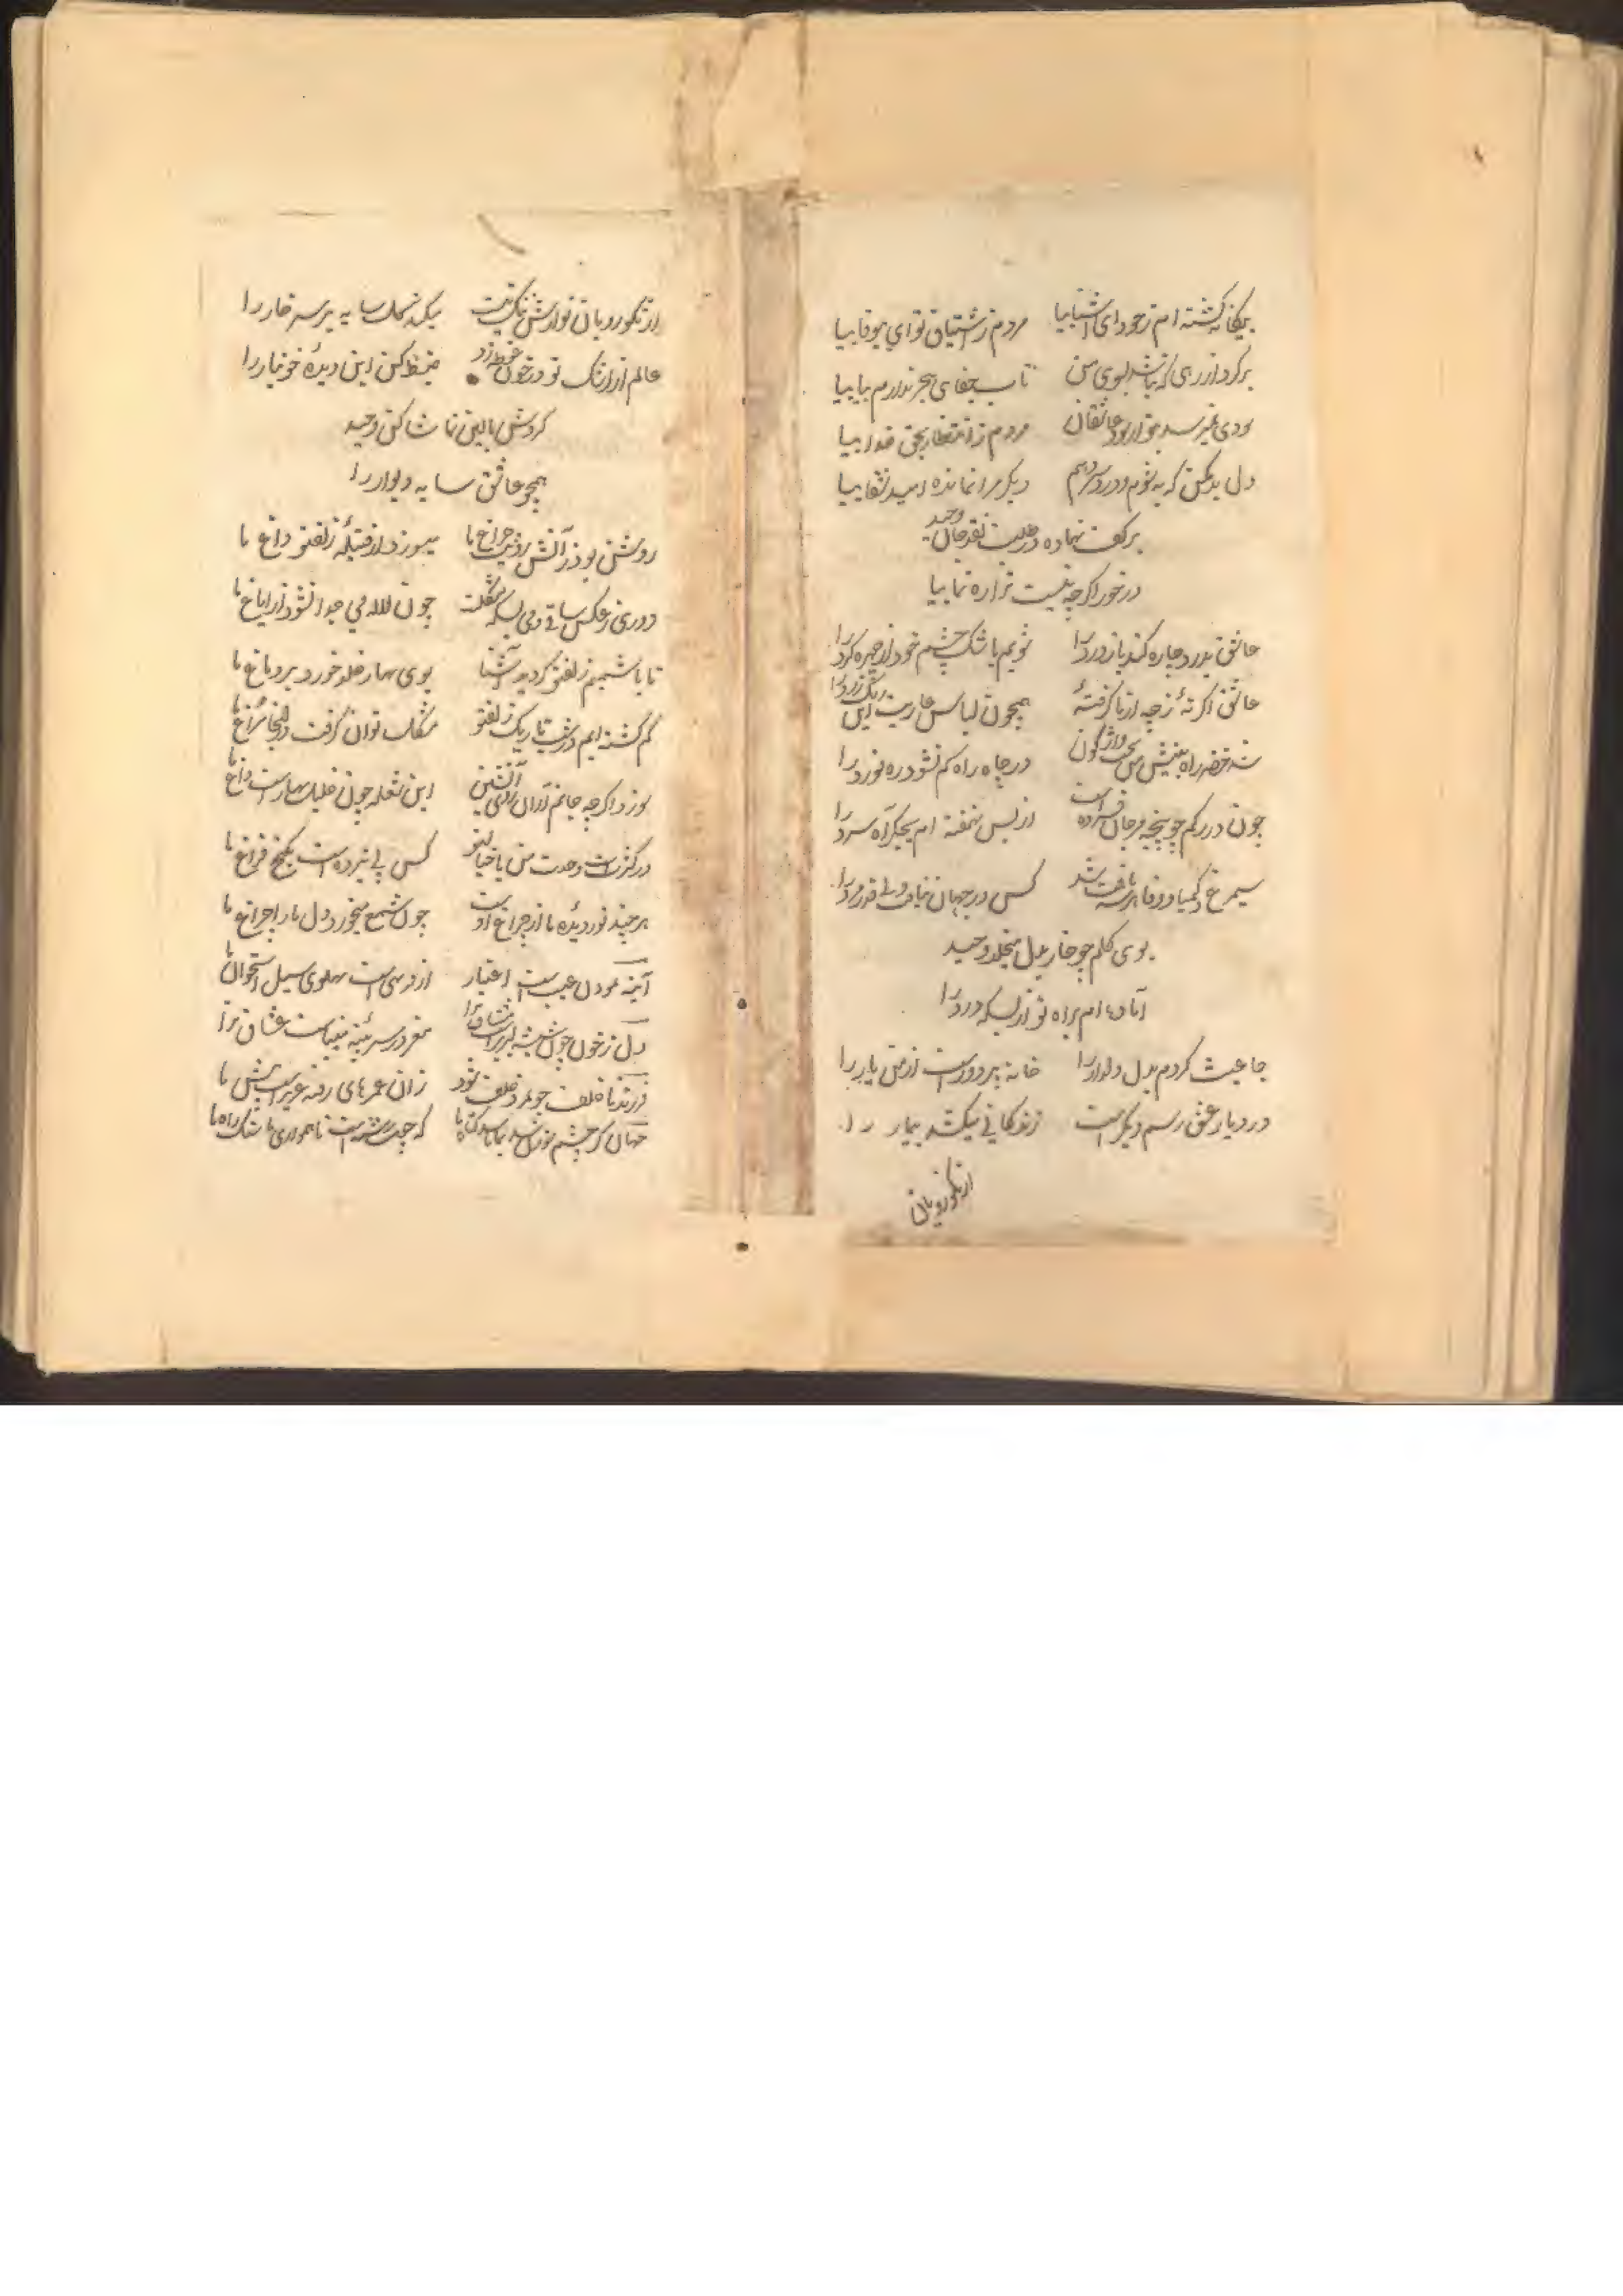 بیگانه گشته ام ز خود ای آشنا بیا مردم ز اشتیاق تو ای بیوفا بیا
برگرد از رهی که نباشد بسوی من تاب جفای هجر ندارم بیا بیا
بودی غیر سد عاشقان مردم ز انتظار بحق خدا بیا
دل بد مکن که به شوم و درد سر دهم دیگر مرا نمانده امید شفا بیا
بر کف نهاده در طلبت نقد جان وحید
در خور اگرچه نیست ترا ره نما بیا
عاشق بدرد چاره کند باز درد را شویم باشک چشم خود از چهره گرد را
عاشق اگر نهٔ ز چه از ما گرفتهٔ همچون لباس عاریت این رنگ زرد را
شد خضر راه بینش من بخت واژگون در چاه راه کم نشود ره نورد را
چون در رگم چو پنجه مرجان فسرده است از بس نهفته ام بجگر آه سرد را
سیمرغ و کیمیا و وفا هر سه یافت شد کس در جهان نیافت ولی قدر مرد را
بوی گلم چو خار بدل میخلد وحید
آماده ام براه تو از بسکه درد را
جا عبث کردم بدل دلدار را خانه پرورد است از من یار را
در دیار عشق رسم دیگر است زندگانی میکشد بیمار را
از نکورویان
از نکورویان نوازش ننگ نیست میکند گل سایه بر سر خار را
عالم از رنگ تو در خون غوطه زد ضبط کن این دیدهٔ خونبار را
گردش بالین تماشا کن وحید
همچو عاشق سایه دیوار را
روشن بود ز آتش رویت چراغ ما میسوزد از فتیله زلف تو داغ ما
دوری ز عکس ساقی و می بسکه مشکلست چون لاله می جدا نشود از ایاغ ما
تا با شمیم زلف تو گردید آشنا بوی بهار خلد خورد بر دماغ ما
گم گشته ایم در شب تاریک زلف تو مشکل توان گرفت در اینجا سراغ ما
سوزد اگرچه جانم از آن روی آتشین این شعله چون خلیل بهارست داغ ما
در کثرتست وحدت من با خیال تو کس پی نبرده است بکنج فراغ ما
هرچند نور دیده ما از چراغ اوست چون شمع میخورد دل ما را چراغ ما
آینه عیب است اعتبار از درهم است پهلوی سیل استخوان ما
دل ز خون چون شیشه لبریز است مشتاق ترا مغز در سر پنبه میناست عشاق ترا
فرزند ناخلف چو خلف شود زان عمرهای رفته عزیز است پیش ما
جهان که چشم ما که ناهمواری ما سنگ راه ما